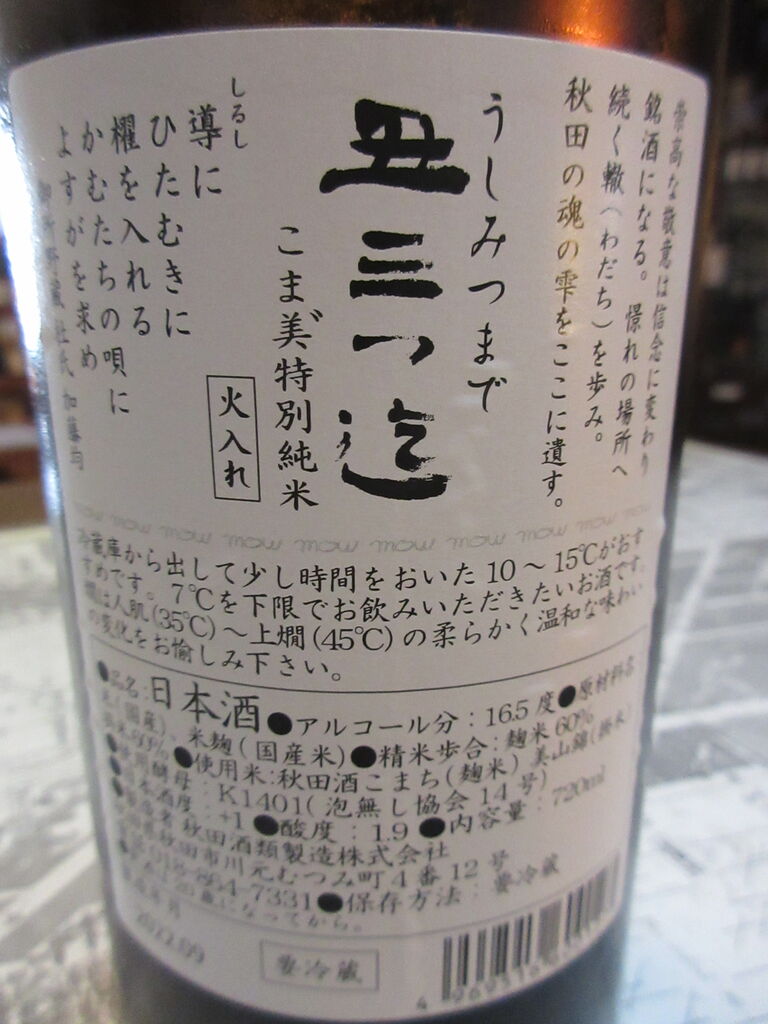 崇高な敬意は信念に変わり
銘酒になる。憬れの場所へ
続く轍(わだち)を歩み。
秋田の魂の雫をここに遺す。
うしみつまで
丑三つ迄
こま美゛特別純米
火入れ
しるし
導に
ひたむきに
櫂を入れる
かむたちの唄に
よすがを求め
御所野蔵 杜氏 加藤均
冷蔵庫から出して少し時間をおいた10～15℃がおす
すめです。7℃を下限でお飲みいただきたいお酒です。
燗は人肌(35℃)～上燗(45℃)の柔らかく温和な味わい
の変化をお愉しみ下さい。
●品名:日本酒●アルコール分:16.5度●原材料名
米(国産)、米麹(国産米)●精米歩合:麹米60%
掛米60%●使用米:秋田酒こまち(麹米)美山錦(掛米)
●使用酵母:K1401(泡無し協会14号)
●日本酒度:+1●酸度:1.9●内容量:720ml
●製造者 秋田酒類製造株式会社
秋田市川元むつみ町4番12号
018-864-7331●保存方法:要冷蔵
になってから。
2022.09
要冷蔵